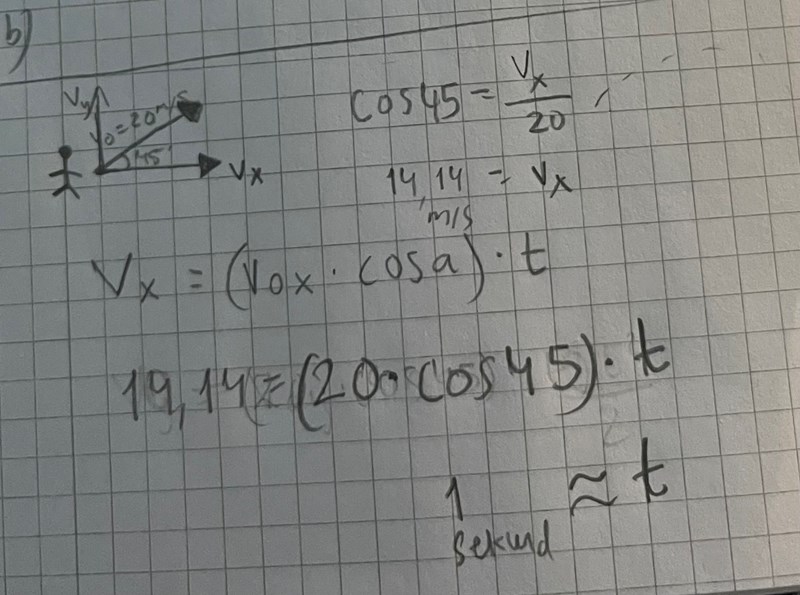 b)
Vy
v0=20m/s
45°
Vx
cos45 = Vx/20
14,14 = Vx
m/s
Vx = (v0x · cosa) · t
14,14 = (20 · cos45) · t
1 ≈ t
sekund